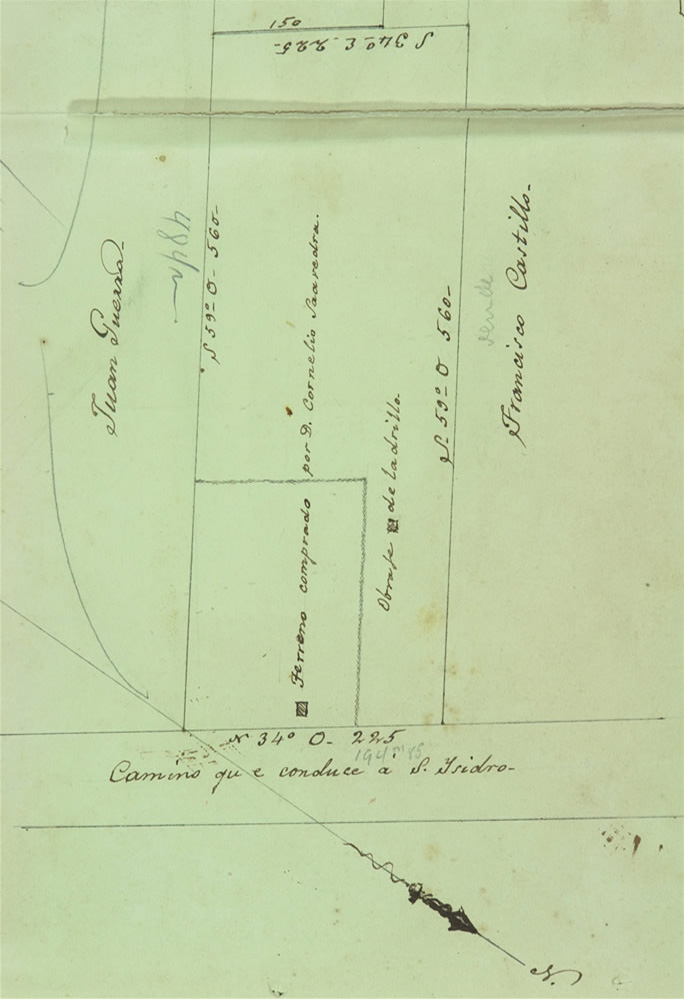 150
S 34º E. 225-
Juan Guerra-
S 59º O- 560-
Terreno comprado por D. Cornelio Saavedra.
Obraje de ladrillo.
S. 59º O 560-
Francisco Castillo-
N 34º O- 225
Camino que conduce á S. Isidro-
N.